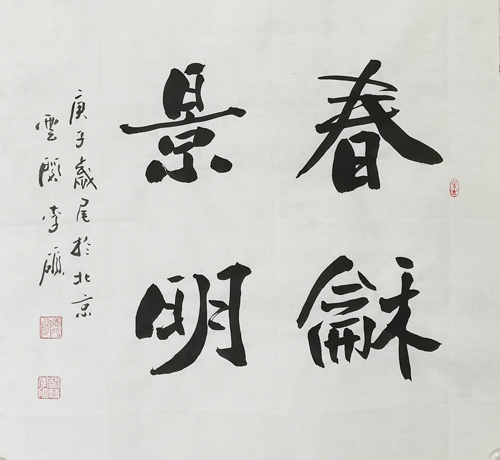 春龢
景明
庚子歲尾於北京
雲李